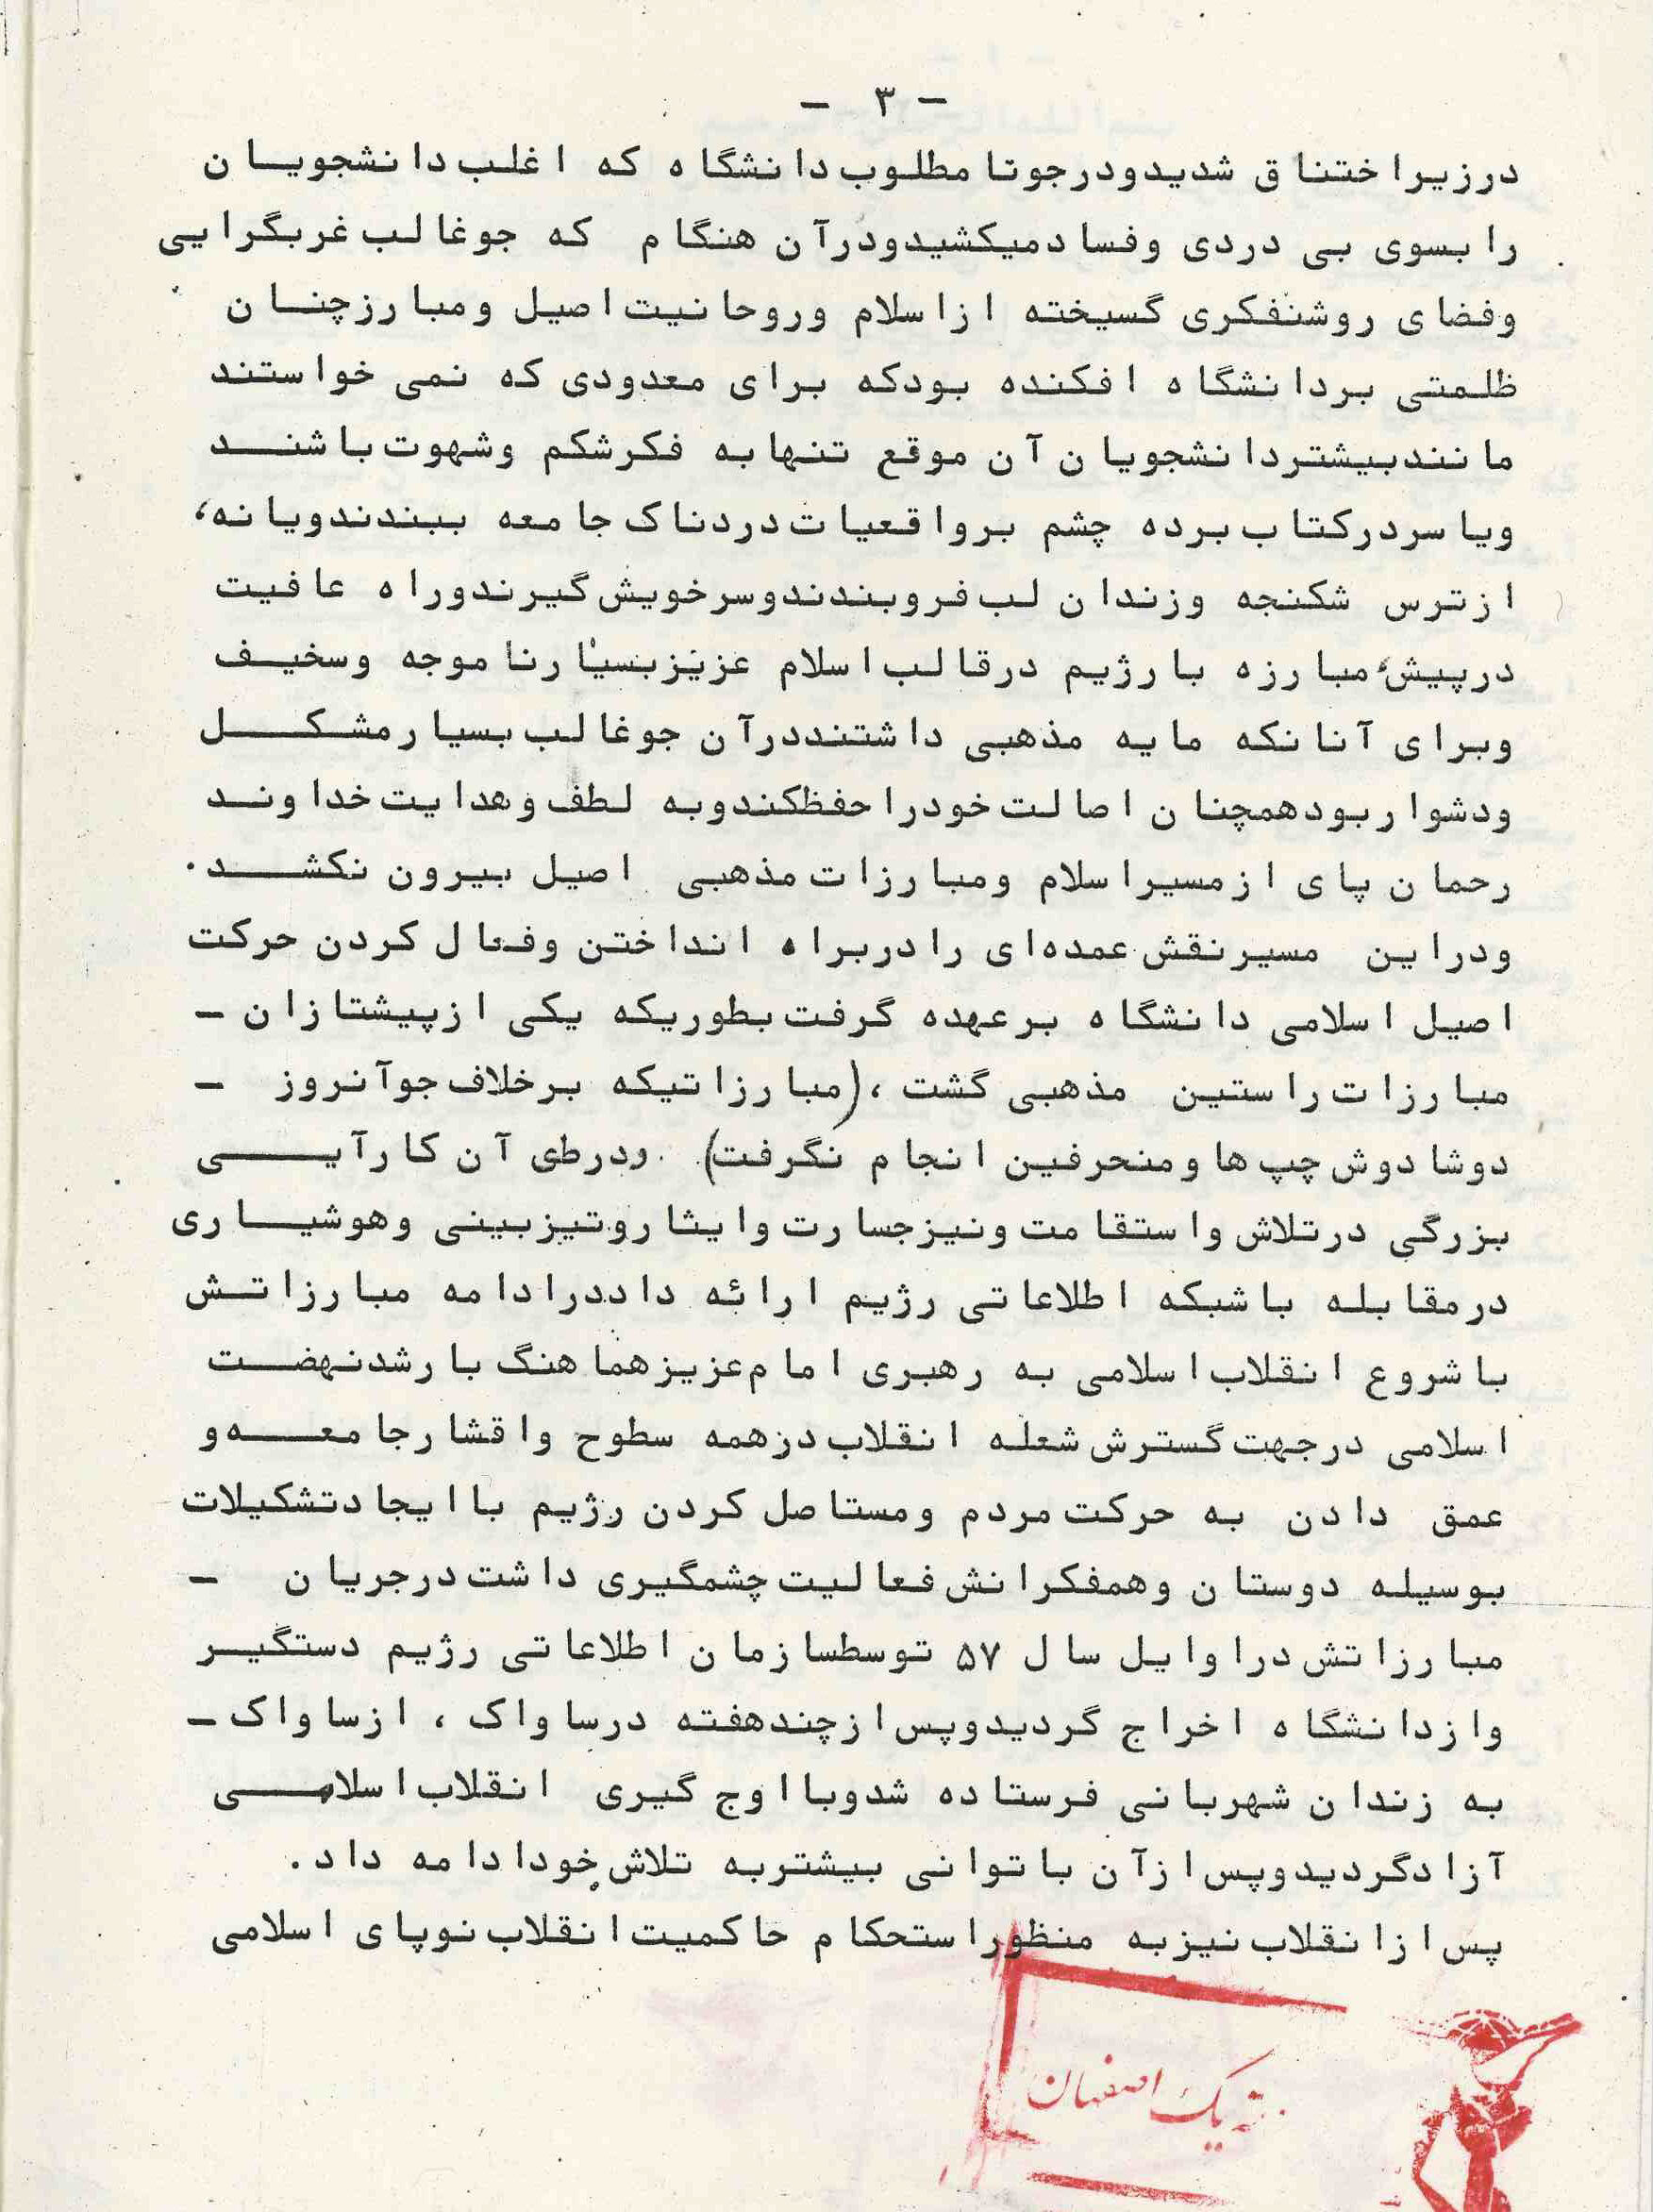 - ۳ -
درزیر اختناق شدید ودرجو نا مطلوب دانشگاه که اغلب دانشجویان
را بسوی بی دردی وفساد میکشید ودرآن هنگام که جو غالب غربگرایی
وفضای روشنفکری گسیخته ازاسلام وروحانیت اصیل ومبارزچنان
ظلمتی بردانشگاه افکنده بودکه برای معدودی که نمی خواستند
مانند بیشتر دانشجویان آن موقع تنها به فکرشکم وشهوت باشند
ویا سردرکتاب برده چشم برواقعیات دردناک جامعه ببندند ویا نه،
ازترس شکنجه وزندان لب فروبندند وسرخویش گیرند وراه عافیت
درپیش، مبارزه با رژیم درقالب اسلام عزیز بسیار نا موجه وسخیف
وبرای آنانکه مایه مذهبی داشتند درآن جو غالب بسیار مشکل
ودشوار بود همچنان اصالت خود را حفظ کند وبه لطف وهدایت خداوند
رحمان پای ازمسیر اسلام ومبارزات مذهبی اصیل بیرون نکشد.
ودراین مسیر نقش عمده‌ای را دربراه انداختن وفعال کردن حرکت
اصیل اسلامی دانشگاه برعهده گرفت بطوریکه یکی ازپیشتازان -
مبارزات راستین مذهبی گشت ، (مبارزاتیکه برخلاف جو آنروز -
دوشادوش چپ ها ومنحرفین انجام نگرفت) . ودرطی آن کارآیی
بزرگی درتلاش واستقامت ونیز جسارت وایثار وتیزبینی وهوشیاری
درمقابله با شبکه اطلاعاتی رژیم ارائه داد درادامه مبارزاتش
با شروع انقلاب اسلامی به رهبری امام عزیز هماهنگ با رشد نهضت
اسلامی درجهت گسترش شعله انقلاب درهمه سطوح واقشار جامعه و
عمق دادن به حرکت مردم ومستاصل کردن رژیم با ایجاد تشکیلات
بوسیله دوستان وهمفکرانش فعالیت چشمگیری داشت درجریان -
مبارزاتش دراوایل سال ۵۷ توسط سازمان اطلاعاتی رژیم دستگیر
وازدانشگاه اخراج گردید وپس ازچند هفته درساواک ، ازساواک -
به زندان شهربانی فرستاده شد وبا اوج گیری انقلاب اسلامی
آزاد گردید وپس ازآن با توانی بیشتر به تلاش خود ادامه داد.
پس ازانقلاب نیز به منظور استحکام حاکمیت انقلاب نوپای اسلامی
یک اصفهان